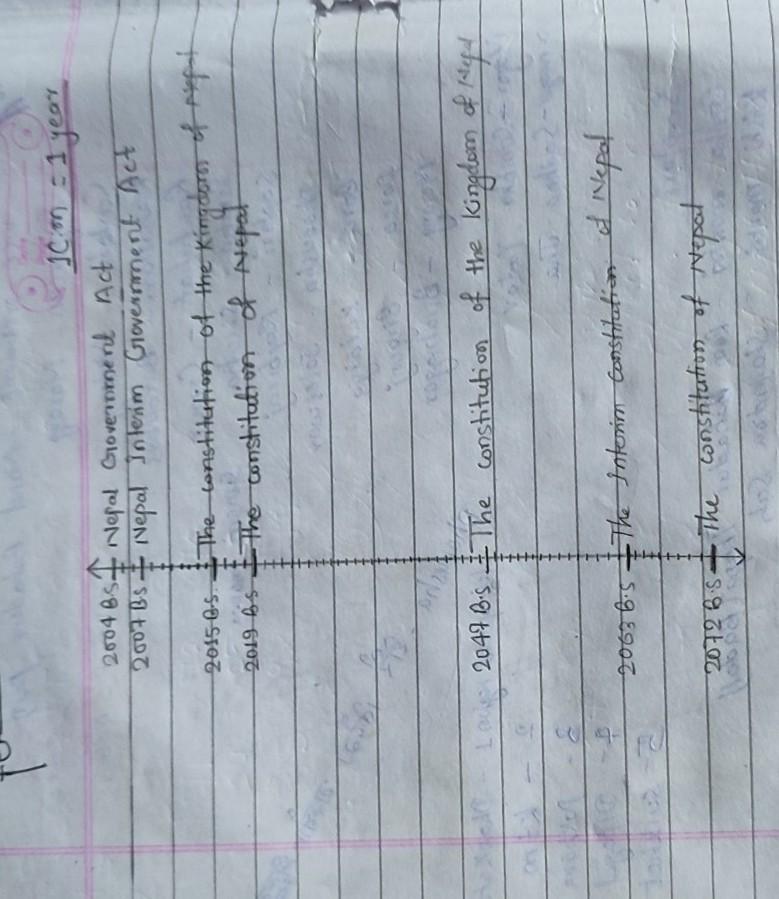 1cm = 1 year
2004 B.S Nepal Government Act
2007 B.S Nepal Interim Government Act
2015 B.S. The constitution of the Kingdom of Nepal
2019 B.S The constitution of Nepal
2047 B.S. The constitution of the Kingdom of Nepal
2063 B.S The Interim constitution of Nepal
2072 B.S The constitution of Nepal